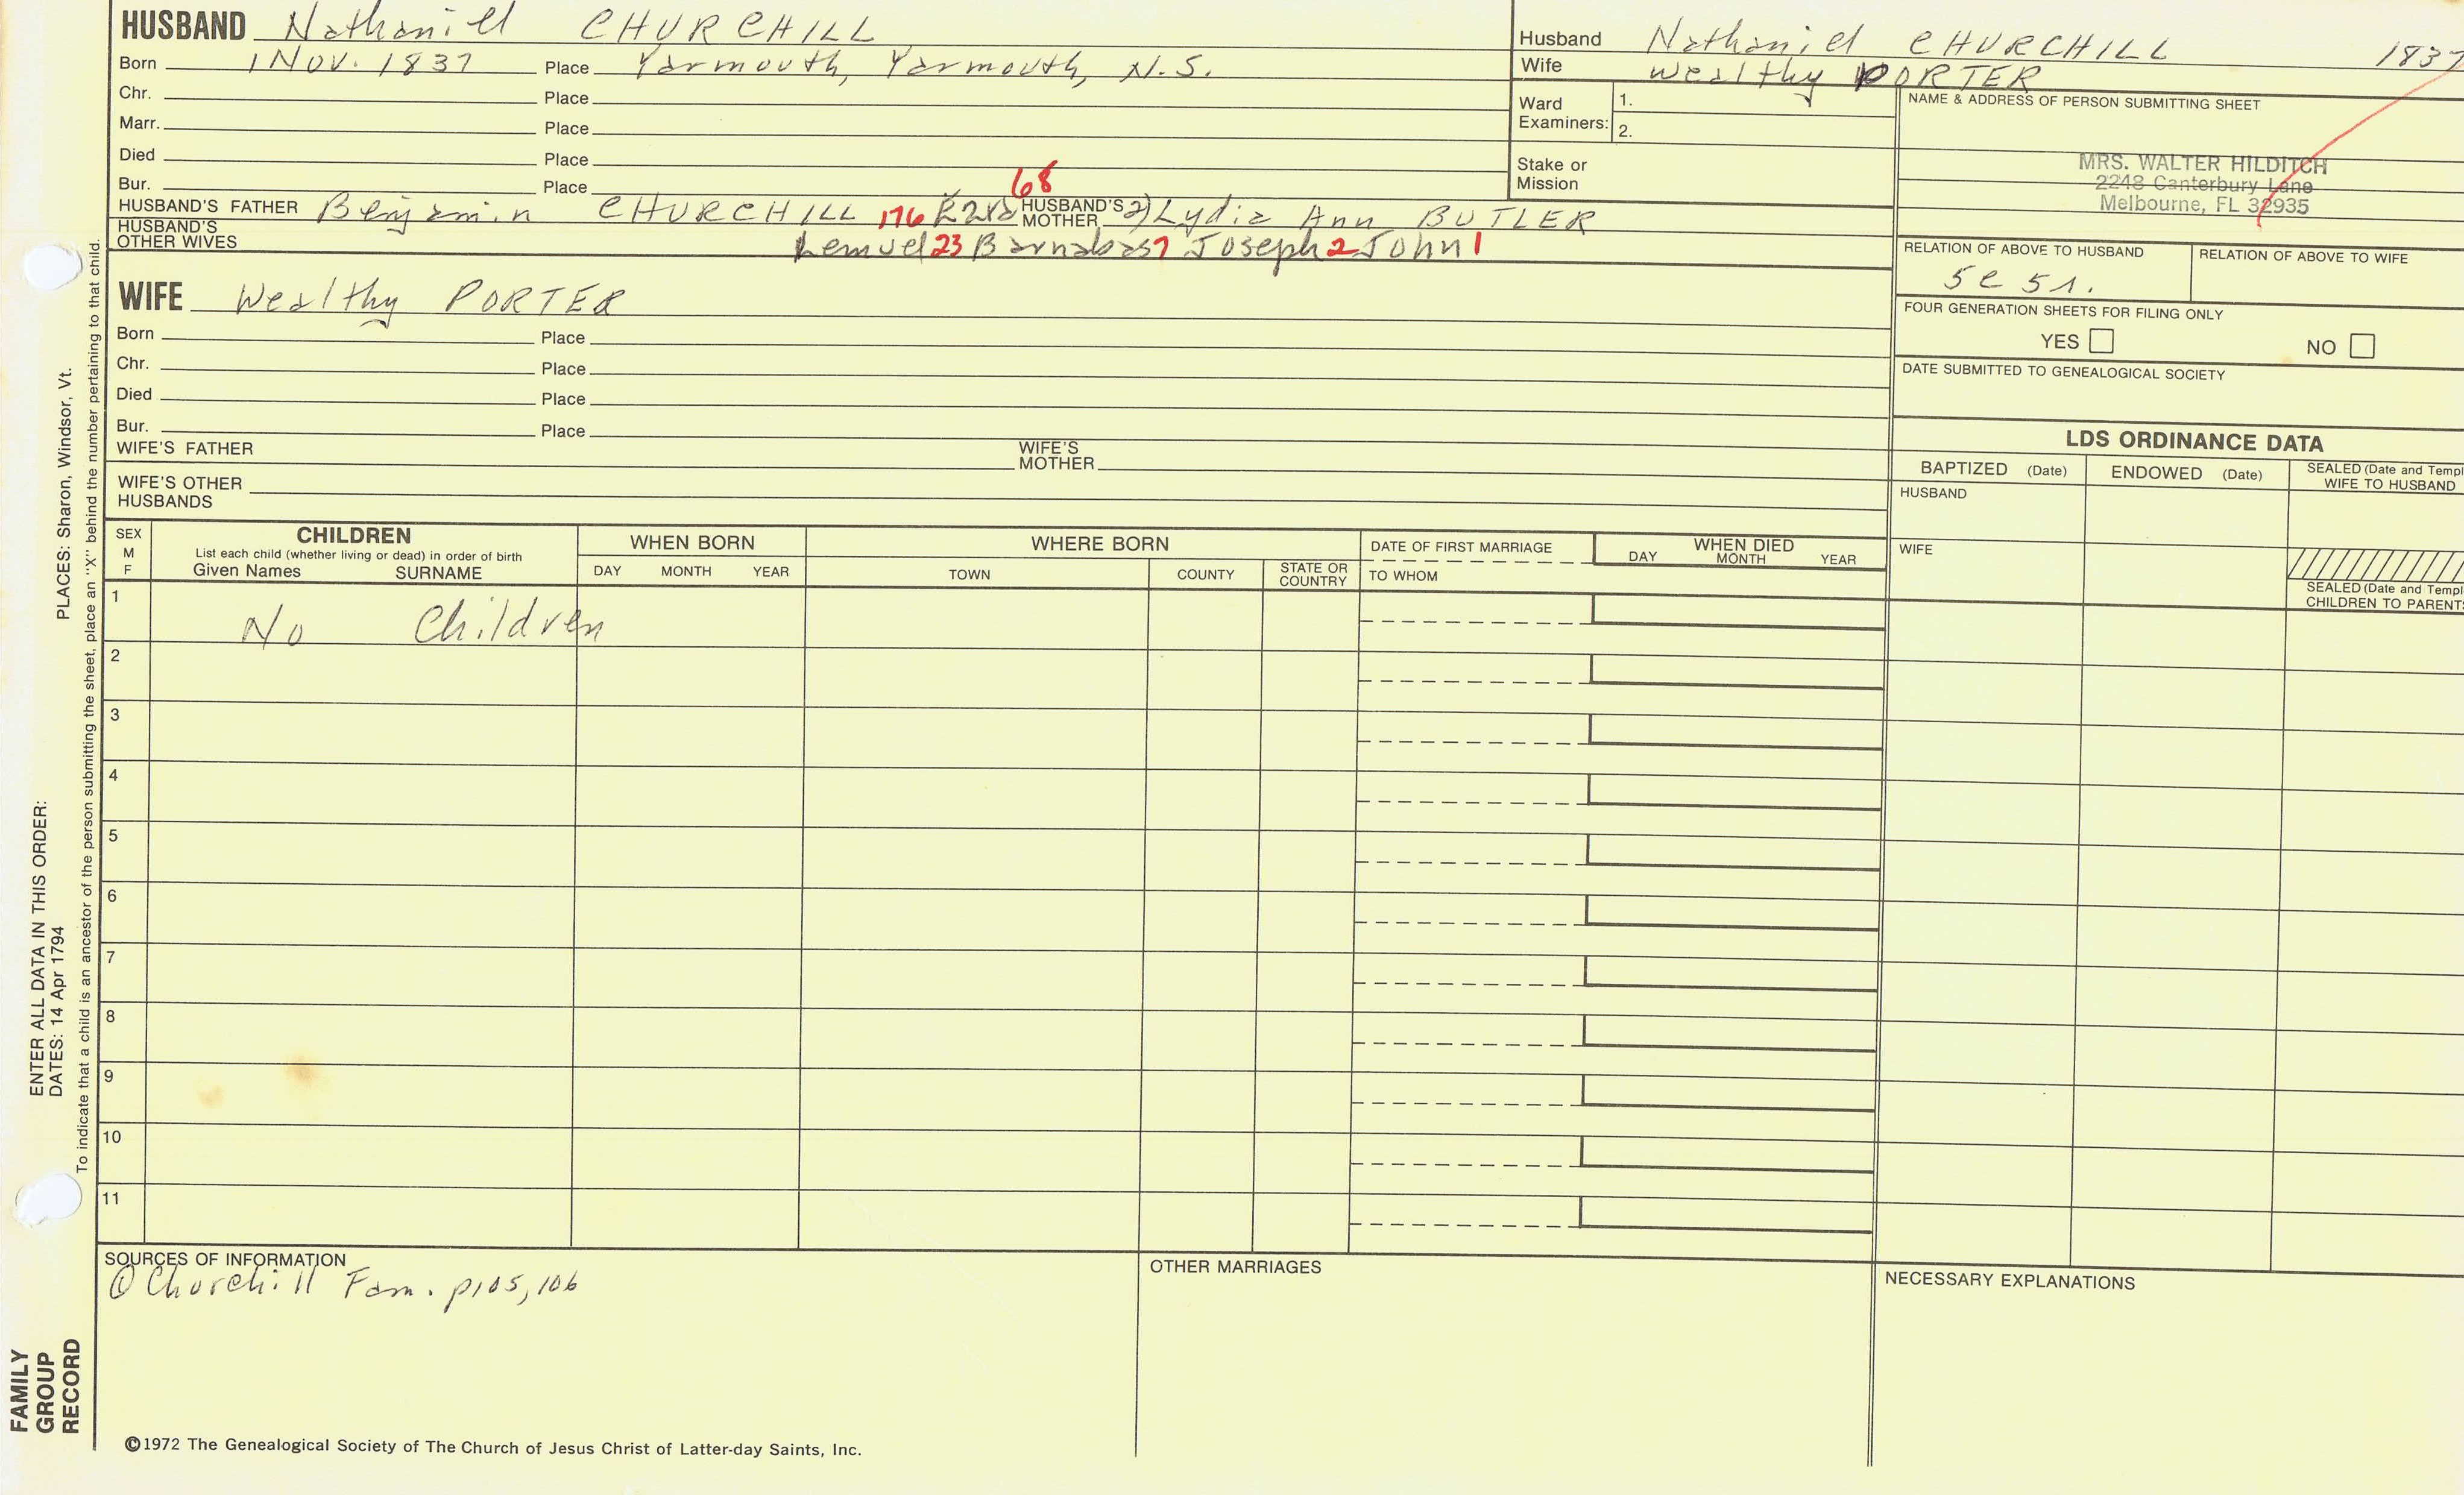 HUSBAND Nathaniel CHURCHILL
Born 1 Nov. 1837 Place Yarmouth, Yarmouth, N.S.
Chr. Place
Marr. Place
Died Place
Bur. Place
68
HUSBAND'S FATHER Benjamin CHURCHILL 176 HUSBAND'S MOTHER 2) Lydia Ann BUTLER
HUSBAND'S OTHER WIVES
Lemuel 23 Barnabas 7 Joseph 2 John 1
WIFE Wealthy PORTER
Born Place
Chr. Place
Died Place
Bur. Place
WIFE'S FATHER WIFE'S MOTHER
WIFE'S OTHER HUSBANDS
Husband Nathaniel CHURCHILL 1837
Wife Wealthy PORTER
Ward Examiners: 1.
2.
Stake or Mission
NAME & ADDRESS OF PERSON SUBMITTING SHEET
MRS. WALTER HILDITCH
2248 Canterbury Lane
Melbourne, FL 32935
RELATION OF ABOVE TO HUSBAND RELATION OF ABOVE TO WIFE
5c 5r.
FOUR GENERATION SHEETS FOR FILING ONLY
YES NO
DATE SUBMITTED TO GENEALOGICAL SOCIETY
LDS ORDINANCE DATA
BAPTIZED (Date) ENDOWED (Date) SEALED (Date and Templ
WIFE TO HUSBAND
HUSBAND
WIFE
SEALED (Date and Templ
CHILDREN TO PARENT
SEX M F
CHILDREN
List each child (whether living or dead) in order of birth
Given Names SURNAME
WHEN BORN
DAY MONTH YEAR
WHERE BORN
TOWN COUNTY STATE OR COUNTRY
DATE OF FIRST MARRIAGE
TO WHOM
WHEN DIED
DAY MONTH YEAR
1 No Children
2
3
4
5
6
7
8
9
10
11
SOURCES OF INFORMATION
① Churchill Fam. p105, 106
OTHER MARRIAGES
NECESSARY EXPLANATIONS
©1972 The Genealogical Society of The Church of Jesus Christ of Latter-day Saints, Inc.
FAMILY
GROUP
RECORD
ENTER ALL DATA IN THIS ORDER:
DATES: 14 Apr 1794 PLACES: Sharon, Windsor, Vt.
To indicate that a child is an ancestor of the person submitting the sheet, place an "X" behind the number pertaining to that child.